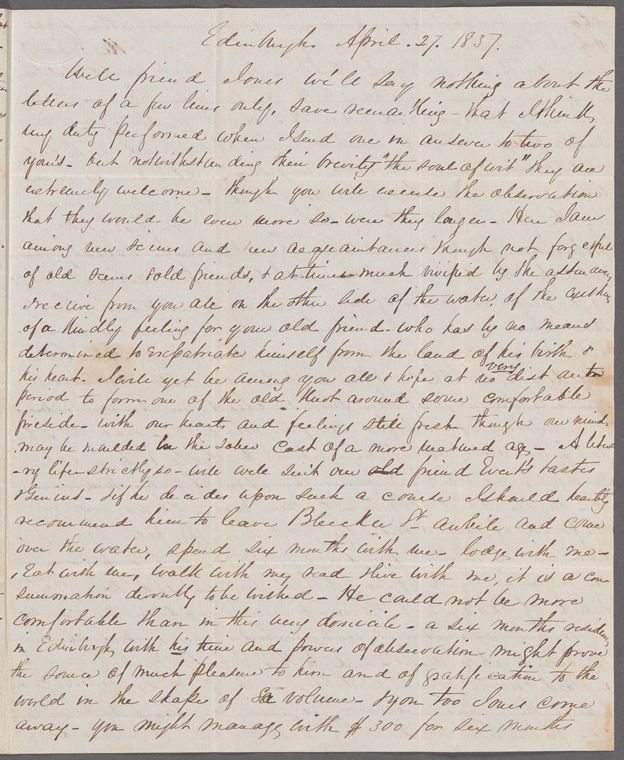 Edinburgh April. 27. 1837.
Well friend Jones we'll say nothing about the
letters of a few lines only, save remarking - that I think
my duty performed when I send one in answer to two of
your's - but notwithstanding their brevity "the soul of wit" they are
extremely welcome - though you will excuse the observation
that they would be even more so - were they longer - Here I am
among new scenes and new acquaintances though not forgetful
of old scenes & old friends, & at times much vivified by the assurance
I receive from you all on the other side of the water, of the existence
of a kindly feeling for your old friend - who has by no means
determined to expatriate himself from the land of his birth &
his heart. I will yet be among you all & hope at no very distant
period to form one of the old knot around some comfortable
fireside - with our hearts and feelings still fresh though our minds
may be moulded in the sober cast of a more matured age - A litera
-ry life - strictly so - will well suit our old friend Evert's tastes
& Genius - & if he decides upon such a course I should heartily
recommend him to leave Bleecker St. awhile and come
over the water, spend six months with me - lodge with me -
, Eat with me, walk with me, read & live with me, it is a con
summation devoutly to be wished - He could not be more
comfortable than in this very domicile - a six months residence
in Edinburgh, with his time and powers of observation - might prove
the source of much pleasure to him and of gratification to the
world in the shape of a volume - & you too Jones come
away - you might manage with $300 for six months